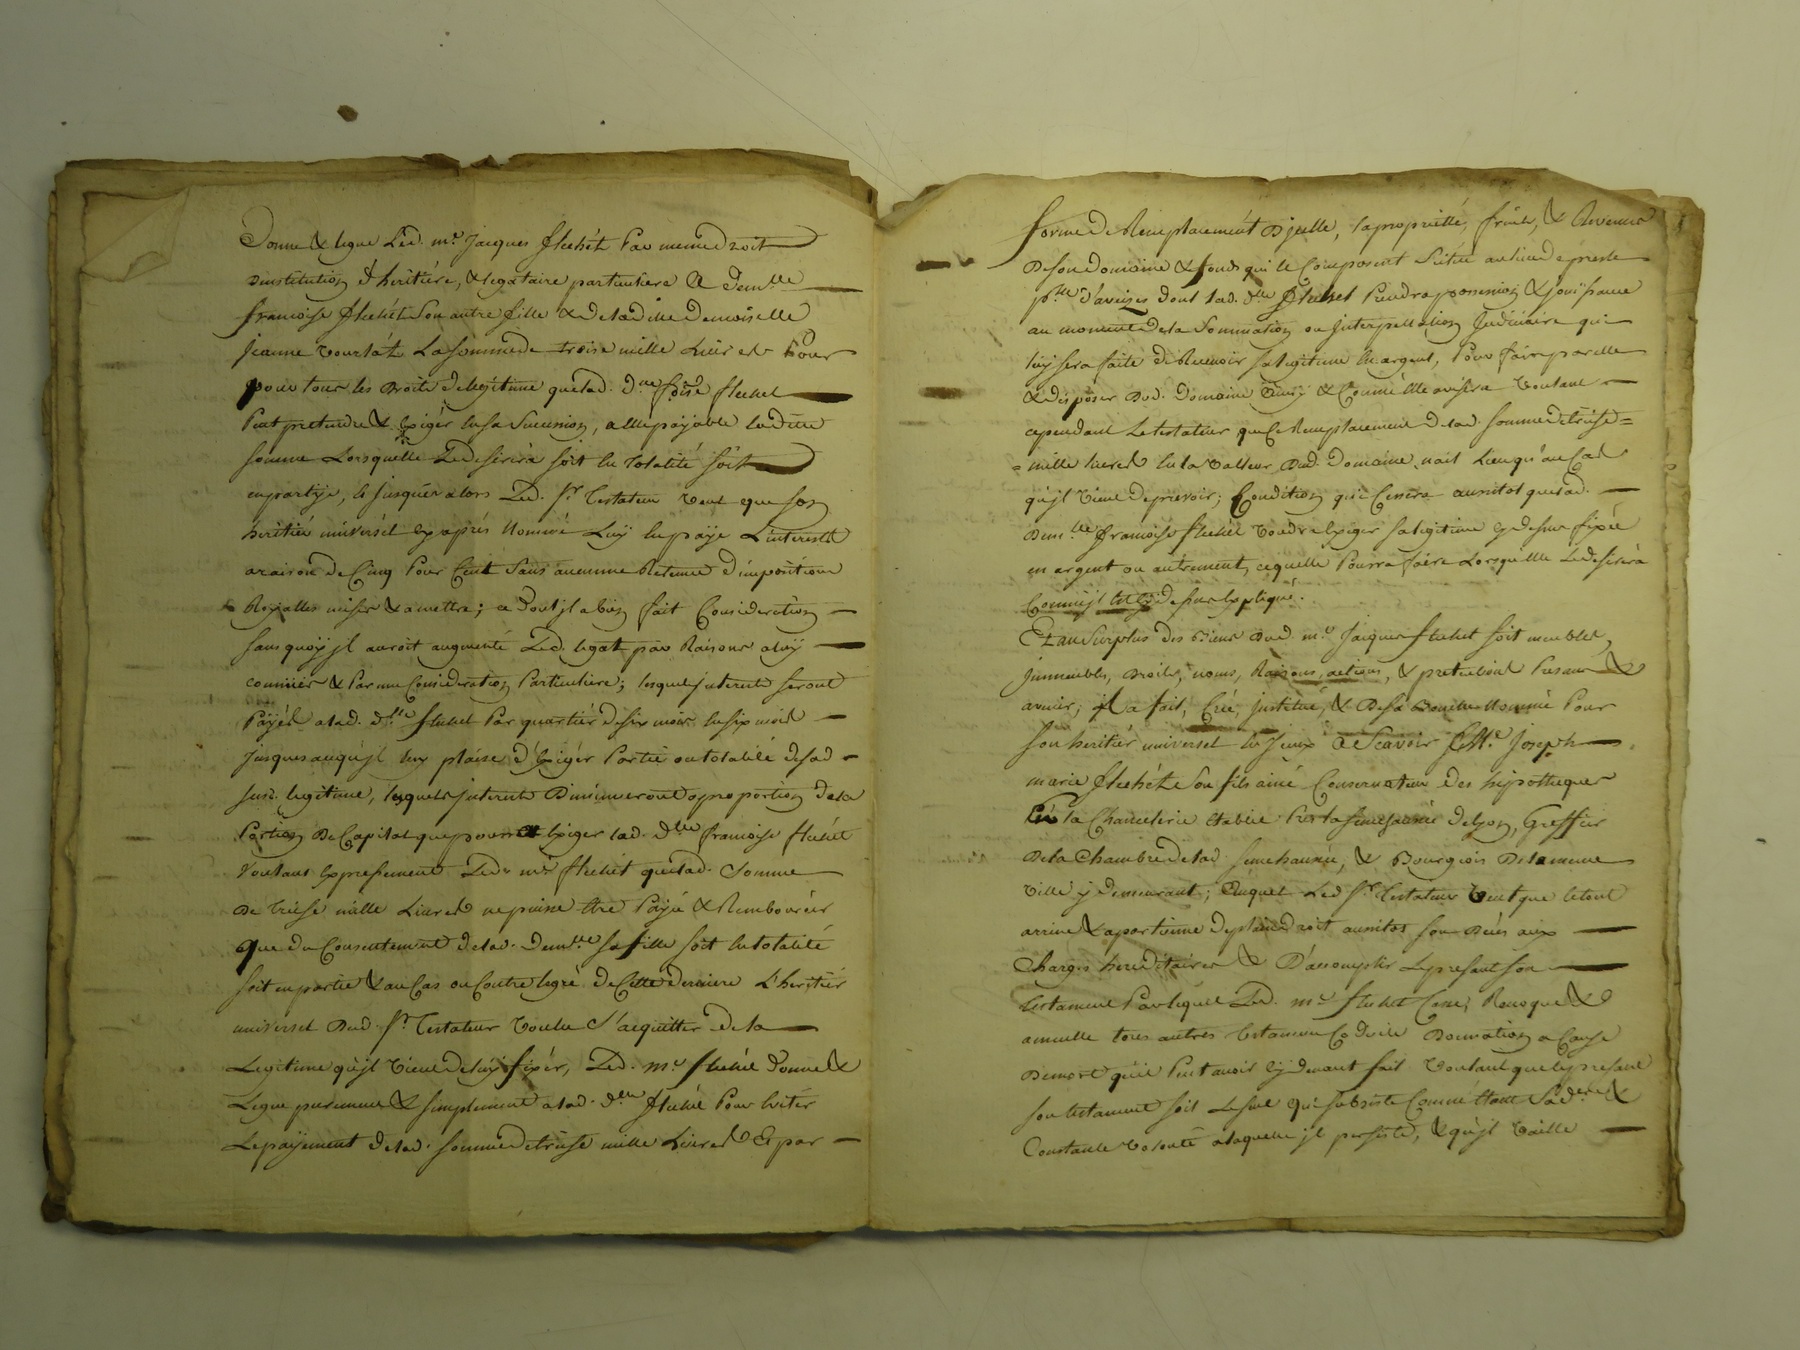 Donne & legue Led. me. Jacques flechét Par meme droit
dinstitution d'heritière, & legataire particuliere A demlle
francoise flechét Son autre fille & de ladille demoiselle
jeanne La somme de treise mille Livres Pour
pour tous les droits de legitime que lad. d
Peut pretendre & Exiger en sa Succession, a elle payable ladite
somme Lorsquelle Le desirera soit en totalité soit
en partye, & jusques alors Led. Sr. Testateur veut que son
heritier universel cy après Nommé Luy en paye L'interest
a raison de Cinq Pour Cent Sans aucunne Retenue d'imposition
Royalles mises & a mettre; a dont jl a bien fait Consideration
sans quoy jl auroit augmenté Led. legat par Raisons a luy
connües & Par une Consideration Particuliere; lesquels jnterets seront
Payés a lad. dlle flechet Par quartier de six mois en six mois
jusques a cequ'jl luy plaise d'Exiger Partie ou totalité de sad
susd. legitime, lesquels jnterets diminueront a proportion de la
Portion de Capital que pourra Exiger lad. dlle francoise flechét
Voulant Expressement Led. me flechét que lad. Somme
De treise mille Livres ne puisse être Payée & Remboursée
que du Consentement de lad. demlle sa fille soit en totalité
soit en partie & au Cas ou Contre legré de Cette derniere L'heritier
universel Dud. Sr Testateur Voulu S'acquitter de la
Legitime qu'jl Vient de luy fixér, Led. me flechét donne &
Legue purement & simplement a lad. dlle flechét Pour Eviter
Le payement de lad. somme de treise mille Livres & par
forme de Remplacement d'jcelle, la proprietté, fruits, & Revenus
De son domaine & fonds qui le Composent Situé
d'aveizes dont lad. dlle flechet Prendra possession & jouissance
au moment de la Sommation ou jnterpellation Judiciaire qui
luy sera faite de Recevoir sa legitime en argent, Pour faire par elle
& disposer Dud. Domaine Ainsy & Comme Elle avisera Voulant
cependant Le testateur que ce Remplacement de lad. somme de treise
mille livres en la Valleur Dud. Domaine nait Lieu qu'au Cas
qu'jl Vient de prevoir; Condition qui Cessera aussitot que lad.
Demlle francoise flechét Voudra Exiger sa legitime cy dessus fixée
en argent ou autrement, ce quelle Pourra faire Lorsqu'elle Le desirera
Comme jl est cy dessus Expliqué.
Et au Surplus des Biens Dud. me Jacques flechet soit meubles,
jmmeubles, Droits, noms, Raisons, actions, & pretentions Presans &
avenir, jl a fait, Créé, jnstitué, & De sa Bouche Nommé Pour
son heritier universel A Scavoir Joseph
marie flechét Son fils ainé Conservateur des hypotteques
En la Chancelerie etablie Prés la senechaussée de lyon, Greffier
De la Chambre de lad senechaussée, & Bourgeois De la meme
Ville y demeurant; Auquel Led Sr Testateur Veut que le tout
arrive & apartienne de plein droit aussitot son décès aux
Charges hereditaires & D'accomplir Le present son
testament Par lequel Led. me flechet Casse, Revoque &
annulle tous autres testamens Codicile Donnation a Cause
De mort qu'il Peut avoir cy devant fait Voulant que le present
son testament soit Le seul qui subsiste Comme étant Sa dere &
Constante Volonté a laquelle jl persiste, & qu'jl Vaille